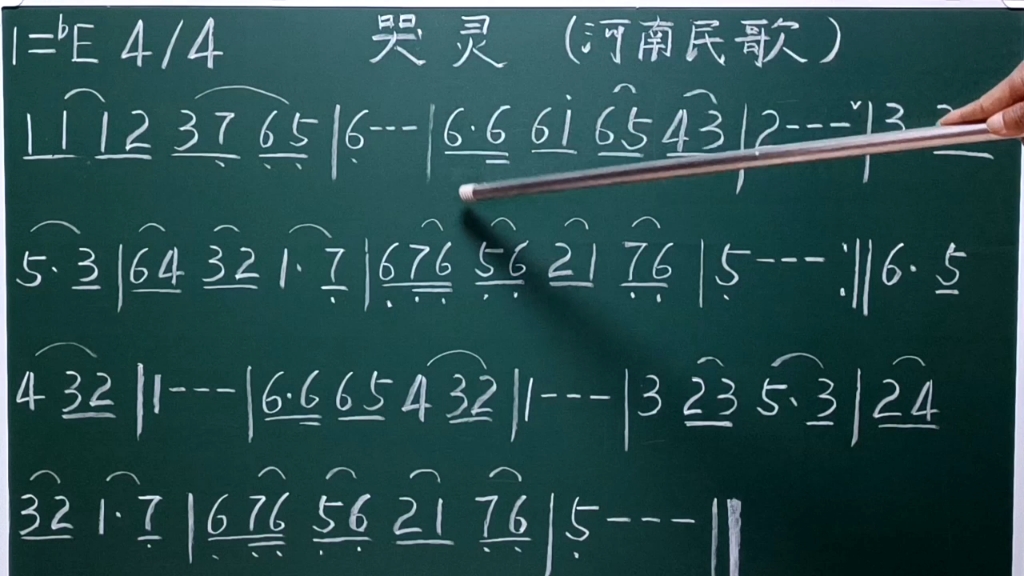 1=bE 4/4 哭灵 (河南民歌)
11 12 37 65 | 6--- | 6·6 6i 65 43 | 2---ˇ | 3
5·3 | 64 32 1·7 | 676 56 21 76 | 5---- :‖ 6· 5
4 32 ‖ 1--- | 6·6 65 4 32 | 1--- | 3 23 5·3 | 24
32 1·7 | 6 76 56 21 76 | 5--- ‖